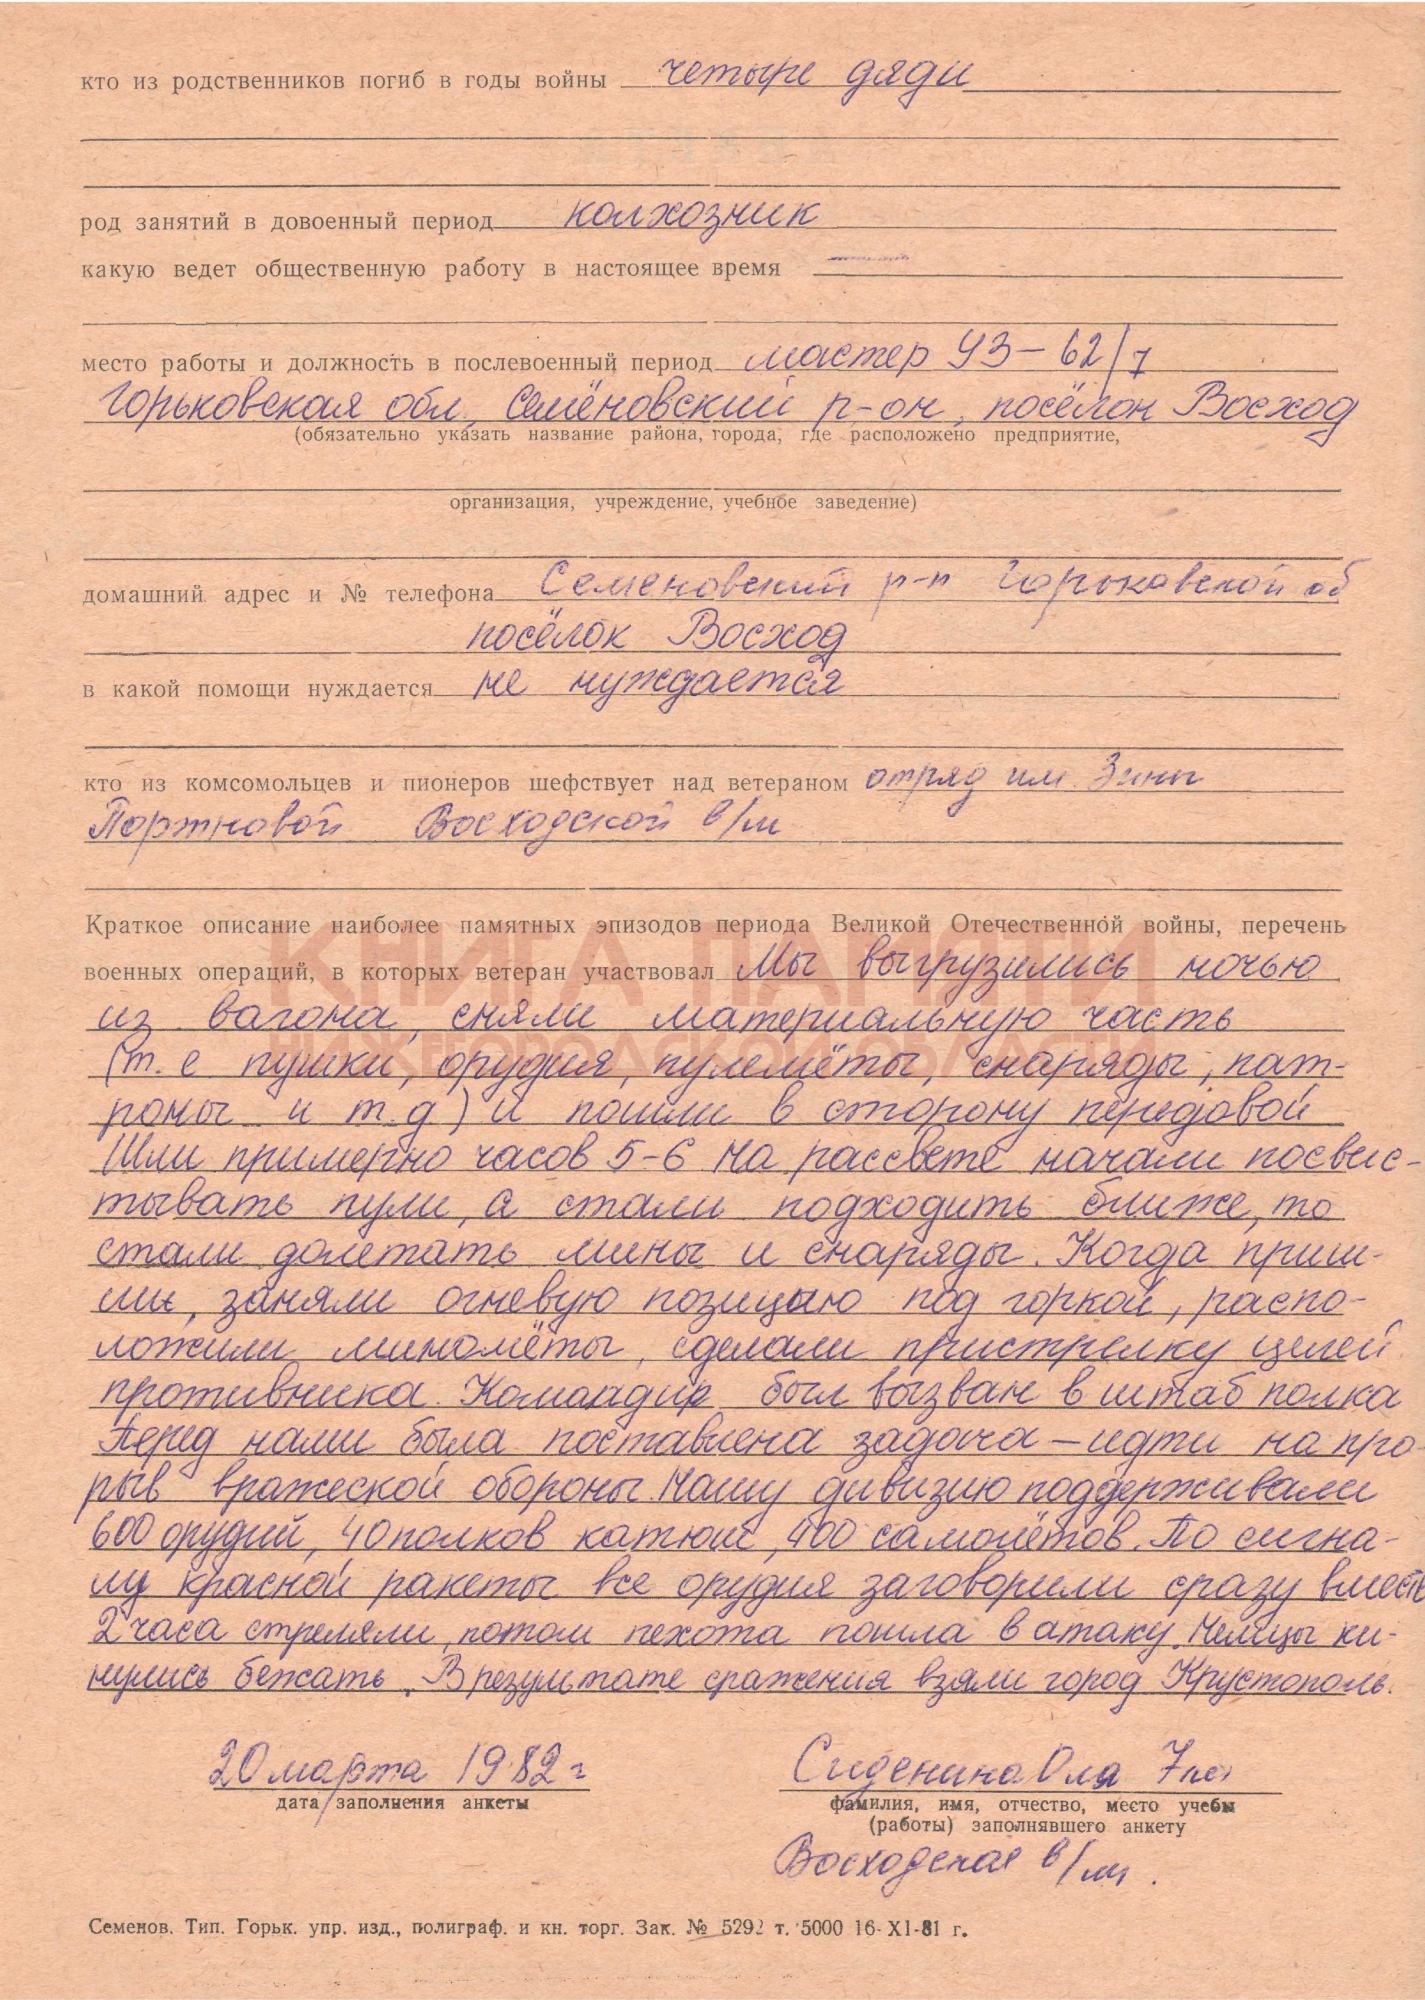 кто из родственников погиб в годы войны четыре дяди
род занятий в довоенный период колхозник
какую ведет общественную работу в настоящее время
место работы и должность в послевоенный период мастер УЗ-62/7
Горьковская обл, Семёновский р-он, посёлок Восход
(обязательно указать название района, города, где расположено предприятие,
организация, учреждение, учебное заведение)
домашний адрес и № телефона Семеновский р-н Горьковской об
посёлок Восход
в какой помощи нуждается не нуждается
кто из комсомольцев и пионеров шефствует над ветераном отряд им. Зины
Портновой Восходской в/ш
Краткое описание наиболее памятных эпизодов периода Великой Отечественной войны, перечень
военных операций, в которых ветеран участвовал Мы выгрузились ночью
КНИГА ПАМЯТИ
из вагона, сняли материальную часть
НИЖЕГОРОДСКОЙ ОБЛАСТИ
(т. е пушки, орудия, пулемёты, снаряды, пат-
роны и т. д) и пошли в сторону передовой
Шли примерно часов 5-6 На рассвете начали посвис-
тывать пули, а стали подходить ближе, то
стали долетать мины и снаряды. Когда приш-
ли, заняли огневую позицыю под горкой, распо-
ложили миномёты, сделали пристрелку целей
противника. Командир был вызван в штаб полка
Перед нами была поставлена задача — идти на про-
рыв вражеской обороны. Нашу дивизию поддерживали
600 орудий, 40 полков катюш, 400 самолётов. По сигна-
лу красной ракеты все орудия заговорили сразу вместе
2 часа стреляли, потом пехота пошла в атаку. Немцы ки-
нулись бежать. В результате сражения взяли город Крустополь.
20 марта 1982 г
Сиденина Оля 7кл
дата заполнения анкеты
фамилия, имя, отчество, место учебы
(работы) заполнявшего анкету
Восходская в/ш.
Семенов. Тип. Горьк. упр. изд., полиграф. и кн. торг. Зак. № 5292 т. 5000 16-XI-81 г.